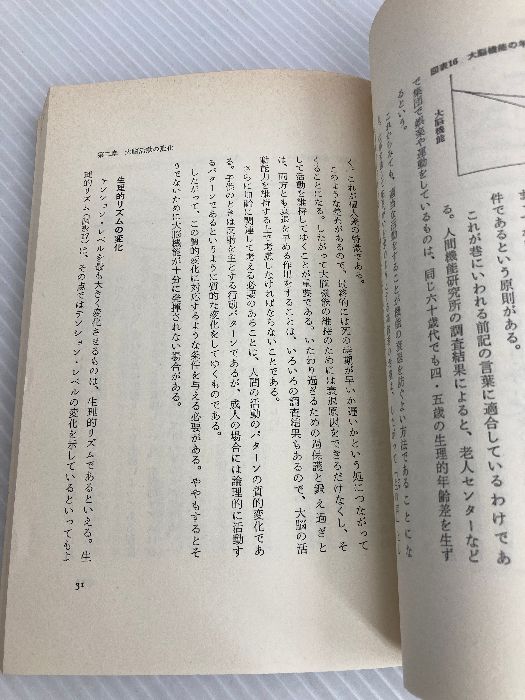 図表16 大脳機能の年
大脳機能
件であるという原則がある。
これが巷にいわれる前記の言葉に適合しているわけであ
る。人間機能研究所の調査結果によると、老人センターなど
で集団で娯楽や運動をしているものは、同じ六十歳代でも四・五歳の生理的年齢差を生ず
るという。
第二章 大脳活動の変化
く、これが老人病の特徴である。
このような差があるので、最終的には死の時期が早いか遅いかという処につながって
くることになる。したがって大脳活動の維持のためには衰退原因をできるだけなくし、そ
して活動を維持してゆくことが重要である。いたわり過ぎるための過保護と鍛え過ぎと
は、両方とも衰退を早める作用をすることは、いろいろの調査結果もあるので、大脳の活
動能力を維持する上で考慮しなければならないことである。
さらに加齢に関連して考える必要のあることは、人間の活動のパターンの質的変化であ
る。子供のときは反射を主とする行動パターンであるが、成人の場合には論理的に活動す
るパターンであるというように質的な変化をしてゆくものである。
したがって、この質的変化に対応するような条件を与える必要がある。ややもするとそ
うでないために大脳機能が十分に発揮されない場合がある。
生理的リズムの変化
テンション・レベルを最も大きく変化させるものは、生理的リズムであるといえる。生
理的リズム
は、その点ではテンション・レベルの変化を示しているといってもよ
31